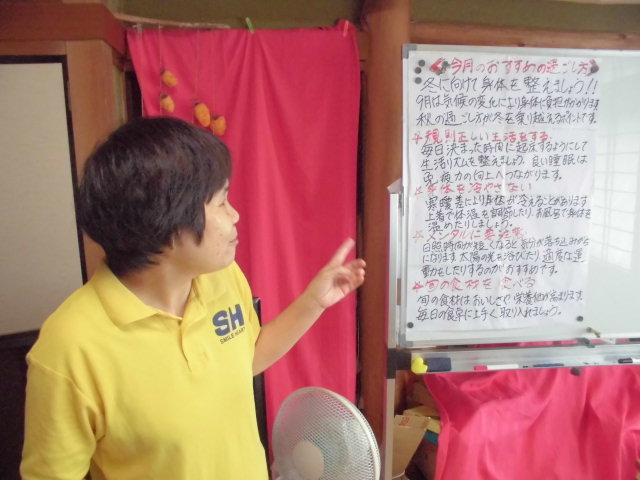 今月のおすすめの過ごし方
冬に向けて身体を整えましょう!!
9月は気候の変化により身体に負担がかかります
秋の過ごし方が冬を乗り越えるポイントです。
☆規則正しい生活をする
毎日決まった時間に起床するようにして
生活リズムを整えましょう。良い睡眠は
免疫力の向上へつながります。
☆身体を冷やさない
寒暖差により身体が冷えることがあります
上着で体温を調節したり、お風呂で身体を
温めたりしましょう。
☆メンタルに要注意
日照時間が短くなると気分が落ち込みがち
になります。太陽の光を浴びたり、適度な運
動をしたりするのがおすすめです。
☆旬の食材を食べる
旬の食材はおいしさや栄養価が高まります。
毎日の食卓に上手く取り入れましょう。
SH
SMILE HEART